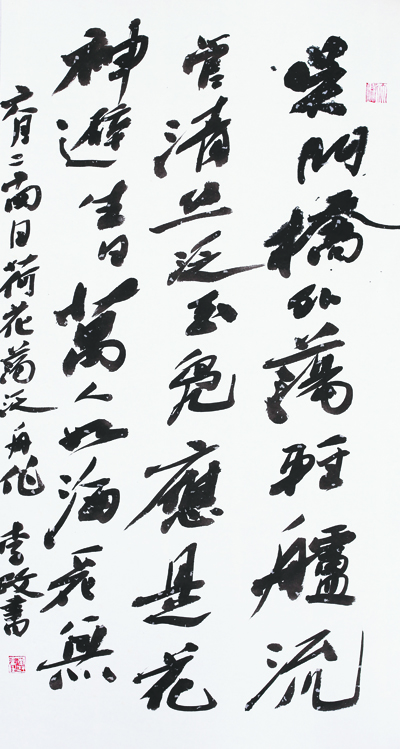 葑門橋外蕩輕艫流
管清絲泛玉凫應是花
神避生日萬人如海一花無
六月二十四日荷花蕩泛舟作 書